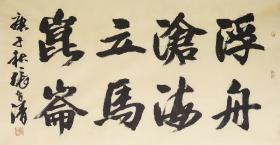 浮舟
滄海
立馬
崑崙
庚子秋張